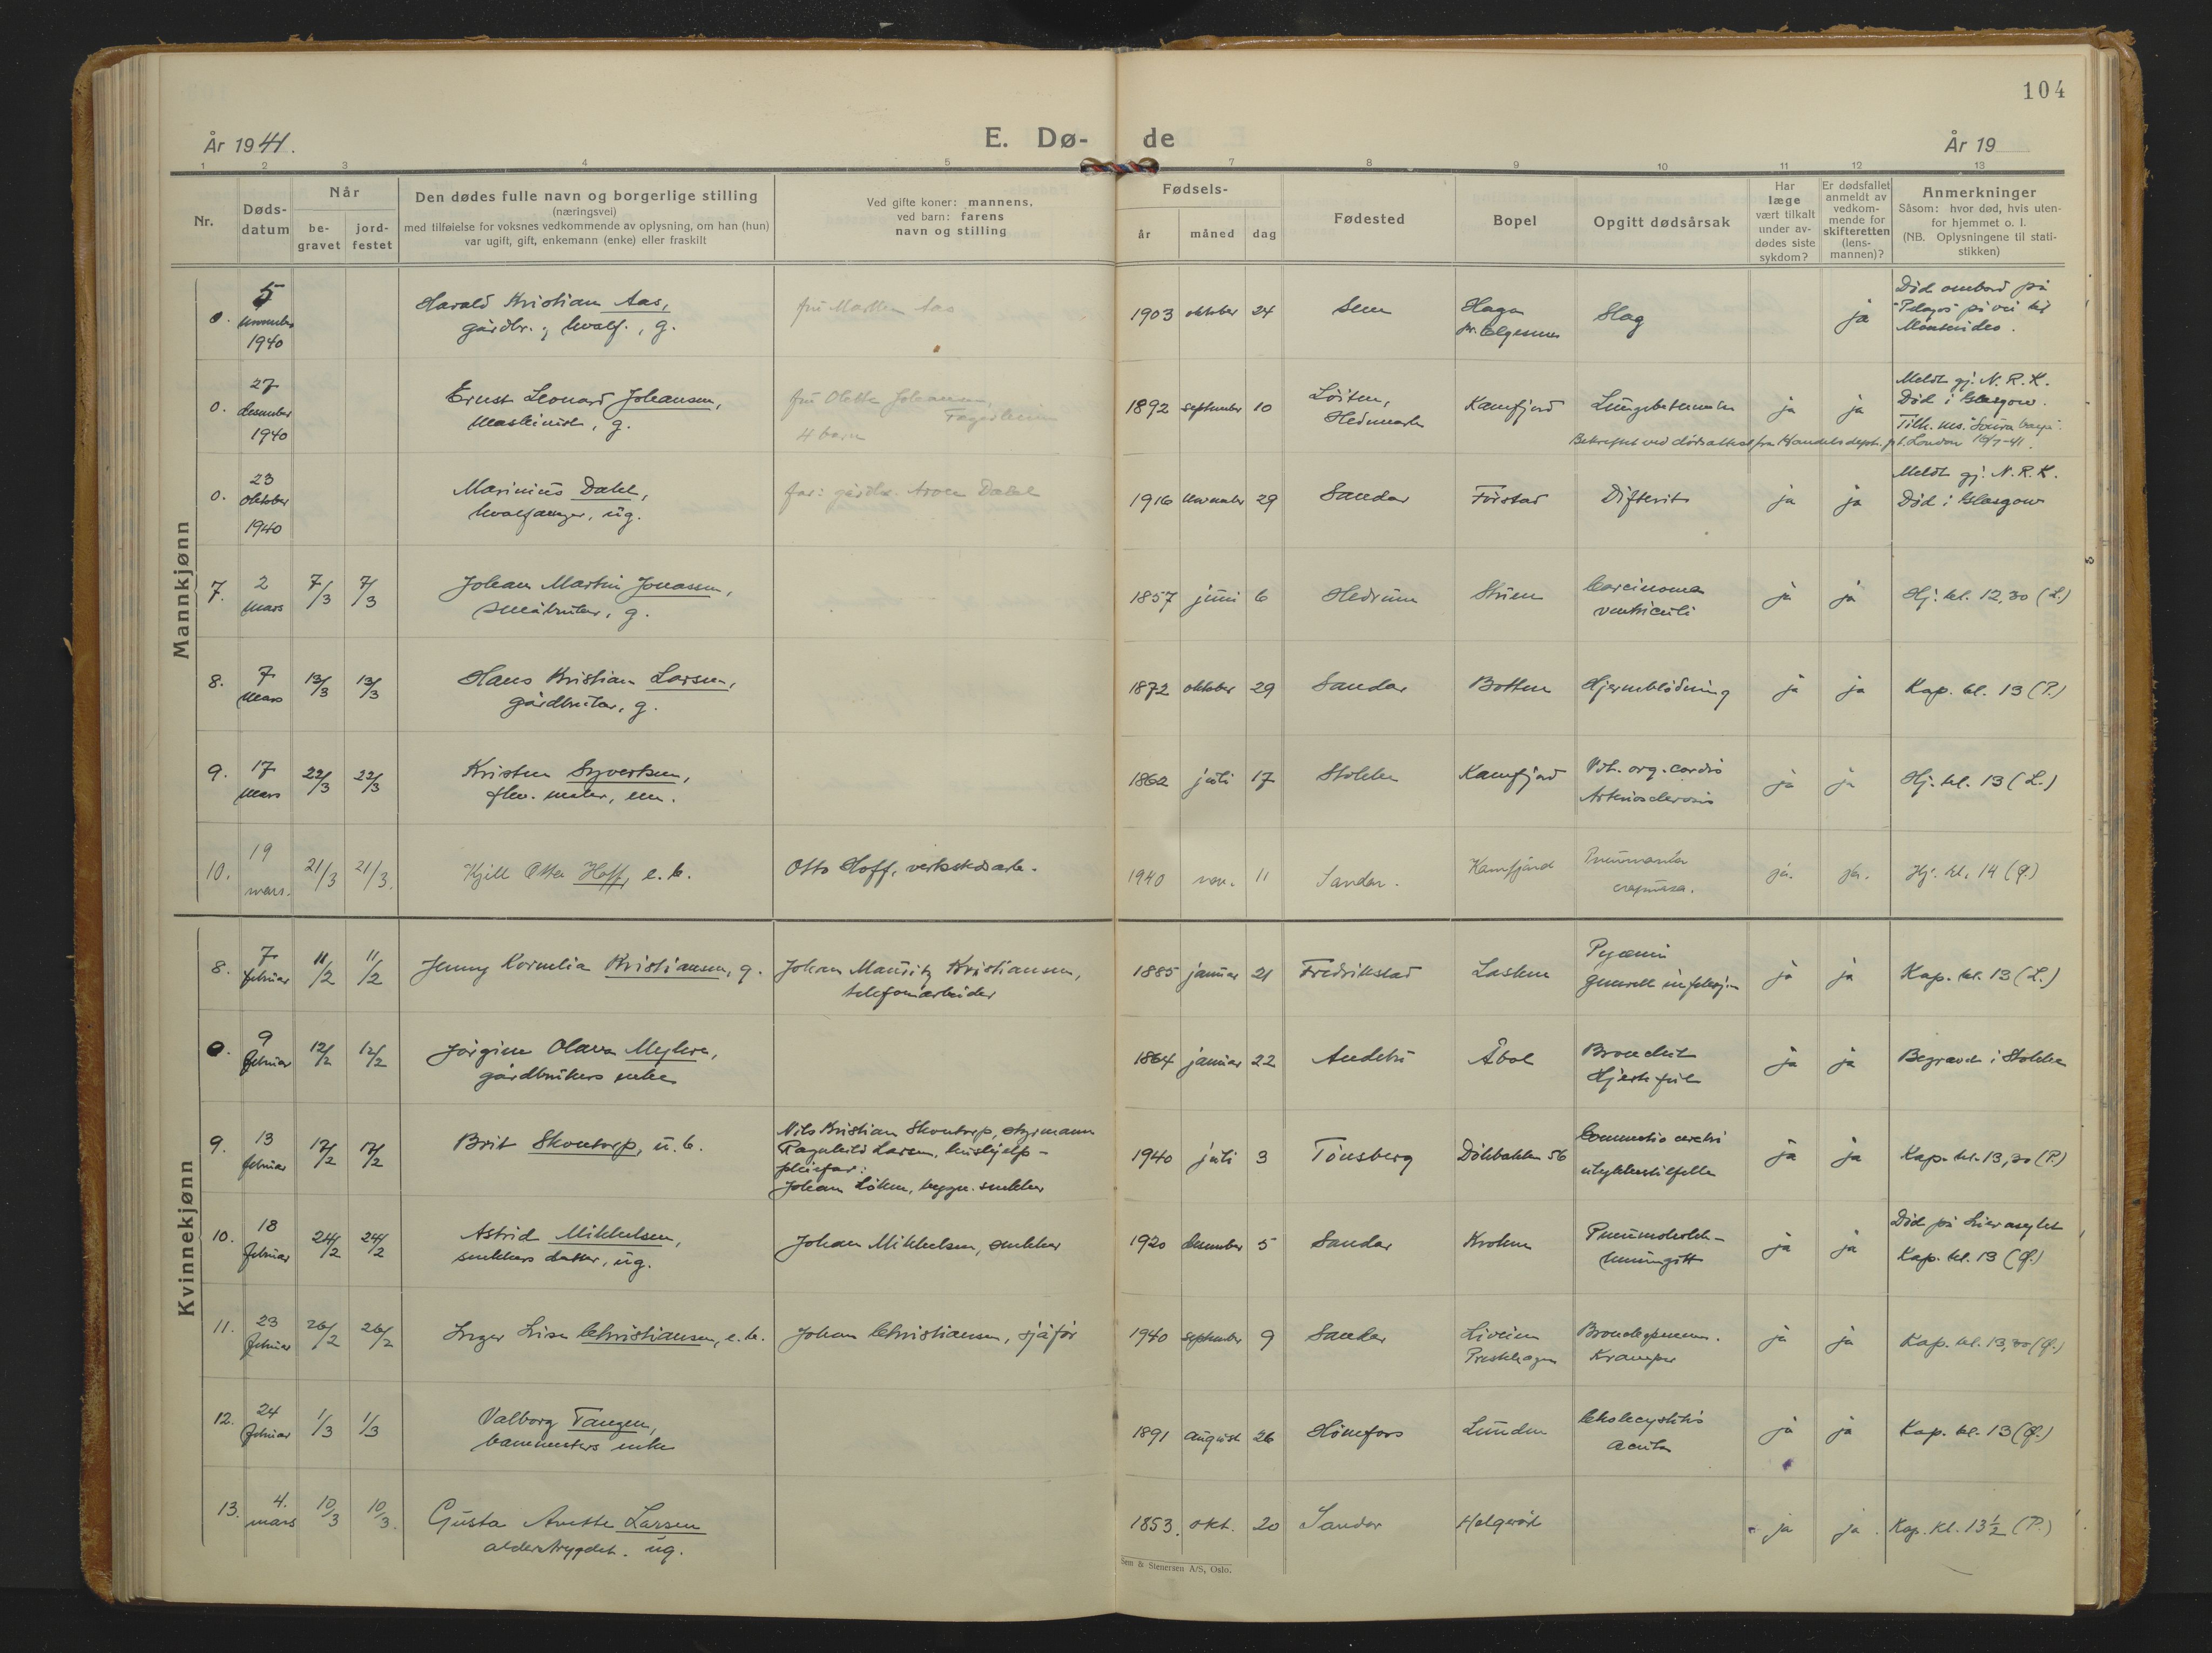 104
År 1941.
E. Dø-
de
År 19
1 2 3 4 5 7 8 9 10 11 12 13
Nr.
Døds-
datum
Når
be-
gravet
jord-
festet
Den dødes fulle navn og borgerlige stilling
(næringsvei)
med tilføielse for voksnes vedkommende av oplysning, om han (hun)
var ugift, gift, enkemann (enke) eller fraskilt
Ved gifte koner: mannens,
ved barn: farens
navn og stilling
Fødsels-
år måned dag
Fødested
Bopel
Opgitt dødsårsak
Har
læge
vært tilkalt
under av-
dødes siste
sykdom?
Er dødsfallet
anmeldt av
vedkom-
mende for
skifteretten
(lens-
mannen)?
Anmerkninger
Såsom: hvor død, hvis uten-
for hjemmet o. l.
(NB. Oplysningene til stati-
stikken)
Mannkjønn
0. 5 november 1940
Harald Kristian Aas,
gårdbr. & hvalf., g.
fru Marthe Aas
1903 oktober 24 Sem
Haga
Slag
ja
Død ombord på
"Pelagos" på vei til
Montevideo.
0. 27 desember 1940
Ernst Leonard Johansen,
maskinist, g.
fru Olette Johansen,
Fagerheim
4 barn
1892 september 10
Løiten,
Hedmark
Kamfjord
Lungebetennelse
ja ja
Meldt gj. N. R. K.
Død i Glasgow.
Bekreftet ved dødsattest fra Handelsdept. London
0. 23 oktober 1940
Marinius Dahl,
hvalfanger, ug.
far: gårdbr. Aron Dahl
1916 november 29 Sandar
Difterit
ja ja
Meldt gj. N. R. K.
Død i Glasgow
7. 2 mars 7/3 7/3
Johan Martin Jonassen,
småbruker, g.
1857 juni 6 Hedrum
Carcinoma
ventriculi
ja ja
Hj. kl. 12,30 (L.)
8. 7 mars 13/3 13/3
Hans Kristian Larsen,
gårdbruker, g.
1872 oktober 29 Sandar
Hjerneblødning
ja ja
Kap. kl. 13 (P.)
9. 17 mars 22/3 22/3
Kristen Syvertsen,
fhv. maler, em.
1862 juli 17 Stokke Kamfjord
Vit. org. cordis
Arteriosclerosis
ja ja
Hj. kl. 13 (L.)
10. 19 mars. 21/3 21/3.
Kjell Otto Hoff, e. b.
Otto Hoff, verkstedsarb.
1940 nov. 11 Sandar. Kamfjord
ja. ja. Hj. kl. 14 (Q.)
Kvinnekjønn
8. 7 februar 11/2 11/2
Jenny Kornelia Kristiansen, g.
Johan Mauritz Kristiansen,
telefonarbeider
1885 januar 21 Fredrikstad
Pyæmi
Generell infeksjon
ja ja Kap. kl. 13 (L.)
0. 9 februar 12/2 12/2
Jørgine Olava Myhre,
gårdbrukers enke
1864 januar 22 Andebu Åbol
Bronchit
Hjertefeil
ja ja Begravet i Stokke
9. 13 februar 17/2 17/2
Brit Skontorp, u. b.
Nils Kristian Skontorp, styrmann
Ragnhild Larsen, hushjelp -
pleiefar:
Johan Løken, byggn. snekker
1940 juli 3 Tønsberg Dølebakken 56
Commotio cerebri
ulykkestilfelle
ja ja Kap. kl. 13,30 (P.)
10. 18 februar 24/2 24/2
Astrid Mikkelsen,
snekkers datter, ug.
Johan Mikkelsen, snekker
1920 desember 5 Sandar Kroken
ja ja
Død på Lier asylet
Kap. kl. 13 (Q.)
11. 23 februar 26/2 26/2
Inger Lise Christiansen, e. b.
Johan Christiansen, sjåfør
1940 september 9 Sandar
Preståsen
Bronchopneum.
Kramper
ja ja Kap. kl. 13,30 (Q.)
12. 24 februar 1/3 1/3
Valborg Tangen,
banemesters enke
1891 august 26 Hønefoss Lunden
Cholecystitis
acuta
ja ja Kap. kl. 13 (Q.)
13. 4. mars 10/3 10/3.
Gusta Anette Larsen
alderstrygdet. ug.
1853. okt. 20 Sandar Helgerød
ja ja. Kap. kl. 13½ (P.)
Sem & Stenersen A/S, Oslo.